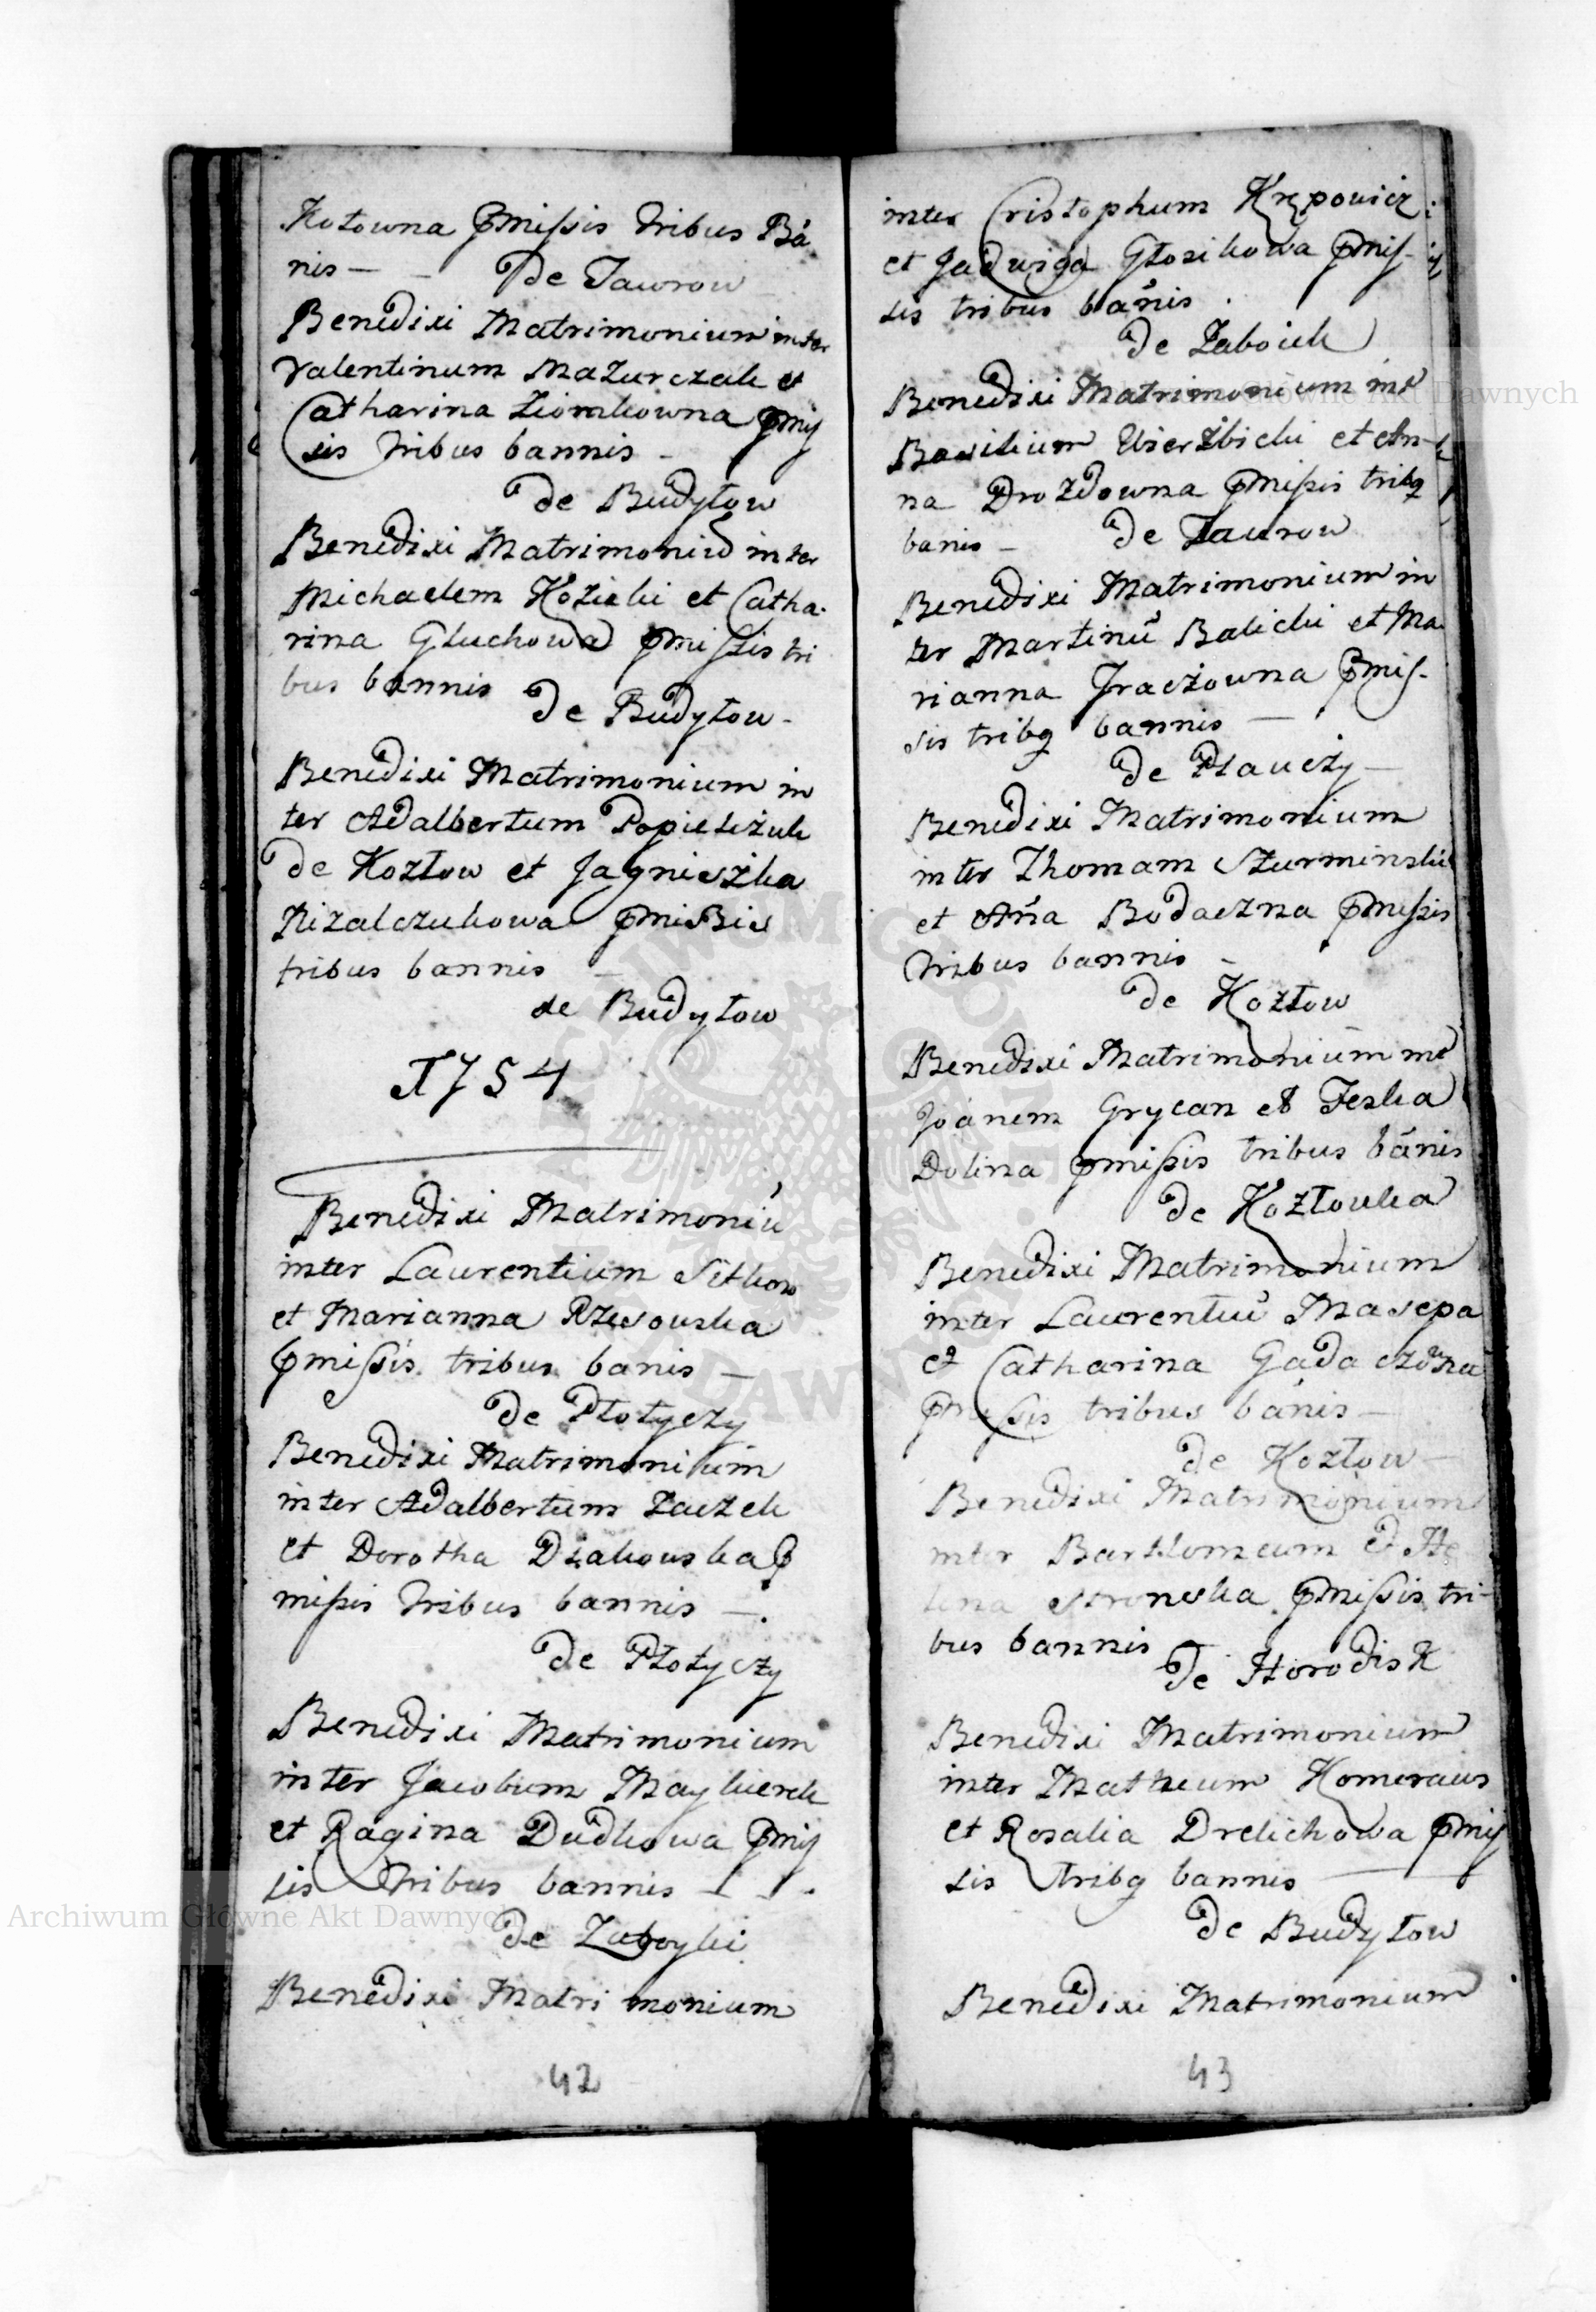 Kotowna pmissis tribus Bā
nis — – De Taurow
Benedixi Matrimonium inter
Valentinum Mazurczak et
Catharina Ziomkowna pmis
sis tribus bannis –
de Budyłow
Benedixi Matrimoniū inter
Michaelem Kozicki et Catha-
rina Głuchowa pmissis tri
bus bannis de Budyłow –
Benedixi Matrimonium in
ter Adalbertum
de Kozłow et Jagnieszka
pmissis
tribus bannis –
de Budyłow
1754
Benedixi Matrimoniū
inter Laurentium
et Marianna Rzesouska
pmissis tribus banis –
de Płotyczy
Benedixi Matrimonium
inter Adalbertum Zaczek
et Dorotha Dziakouska p
missis tribus bannis – .
de Płotyczy
Benedixi Matrimonium
inter Jacobum
et Ragina Dudkowa pmis
sis tribus bannis – – .
de Zaboyki
Benedixi Matrimonium
42
inter Cristophum Krępowicz
et Jadwiga Głosikowa pmis-
sis tribus bānis .
de Zaboick
Benedixi Matrimonium int
Basilium Wierzbicki et An-
na Drozdowna pmissis tribq
banis – de Taurow
Benedixi Matrimonium in
ter Martinū Balicki et Ma
rianna Jraczowna pmis-
sis tribq bannis —
de Płauczy –
Benedixi Matrimonium
inter Thomam Szurminski
et Ana Bodaczna pmissis
tribus bannis –
de Kozłow
Benedixi Matrimonium int
Joānem Grycan et Feska
Dolina pmissis tribus bānis
de Kozłouka
Benedixi Matrimonium
inter Laurentiū Masepa
et Catharina
pmissis tribus bānis –
de Kozłow –
Benedixi Matrimonium
inter Barthlomeum et He
lena Stronska pmissis tri-
bus bannis de Horodisk
Benedixi Matrimonium
inter Matheum Homeraus
et Rosalia Drelichowa pmis
sis tribq bannis —
de Budyłow
Benedixi Matrimonium
43
Archiwum Główne Akt Dawnych
Główne Akt Dawnych
ARCHIWUM GŁÓWNE AKT DAWNYCH